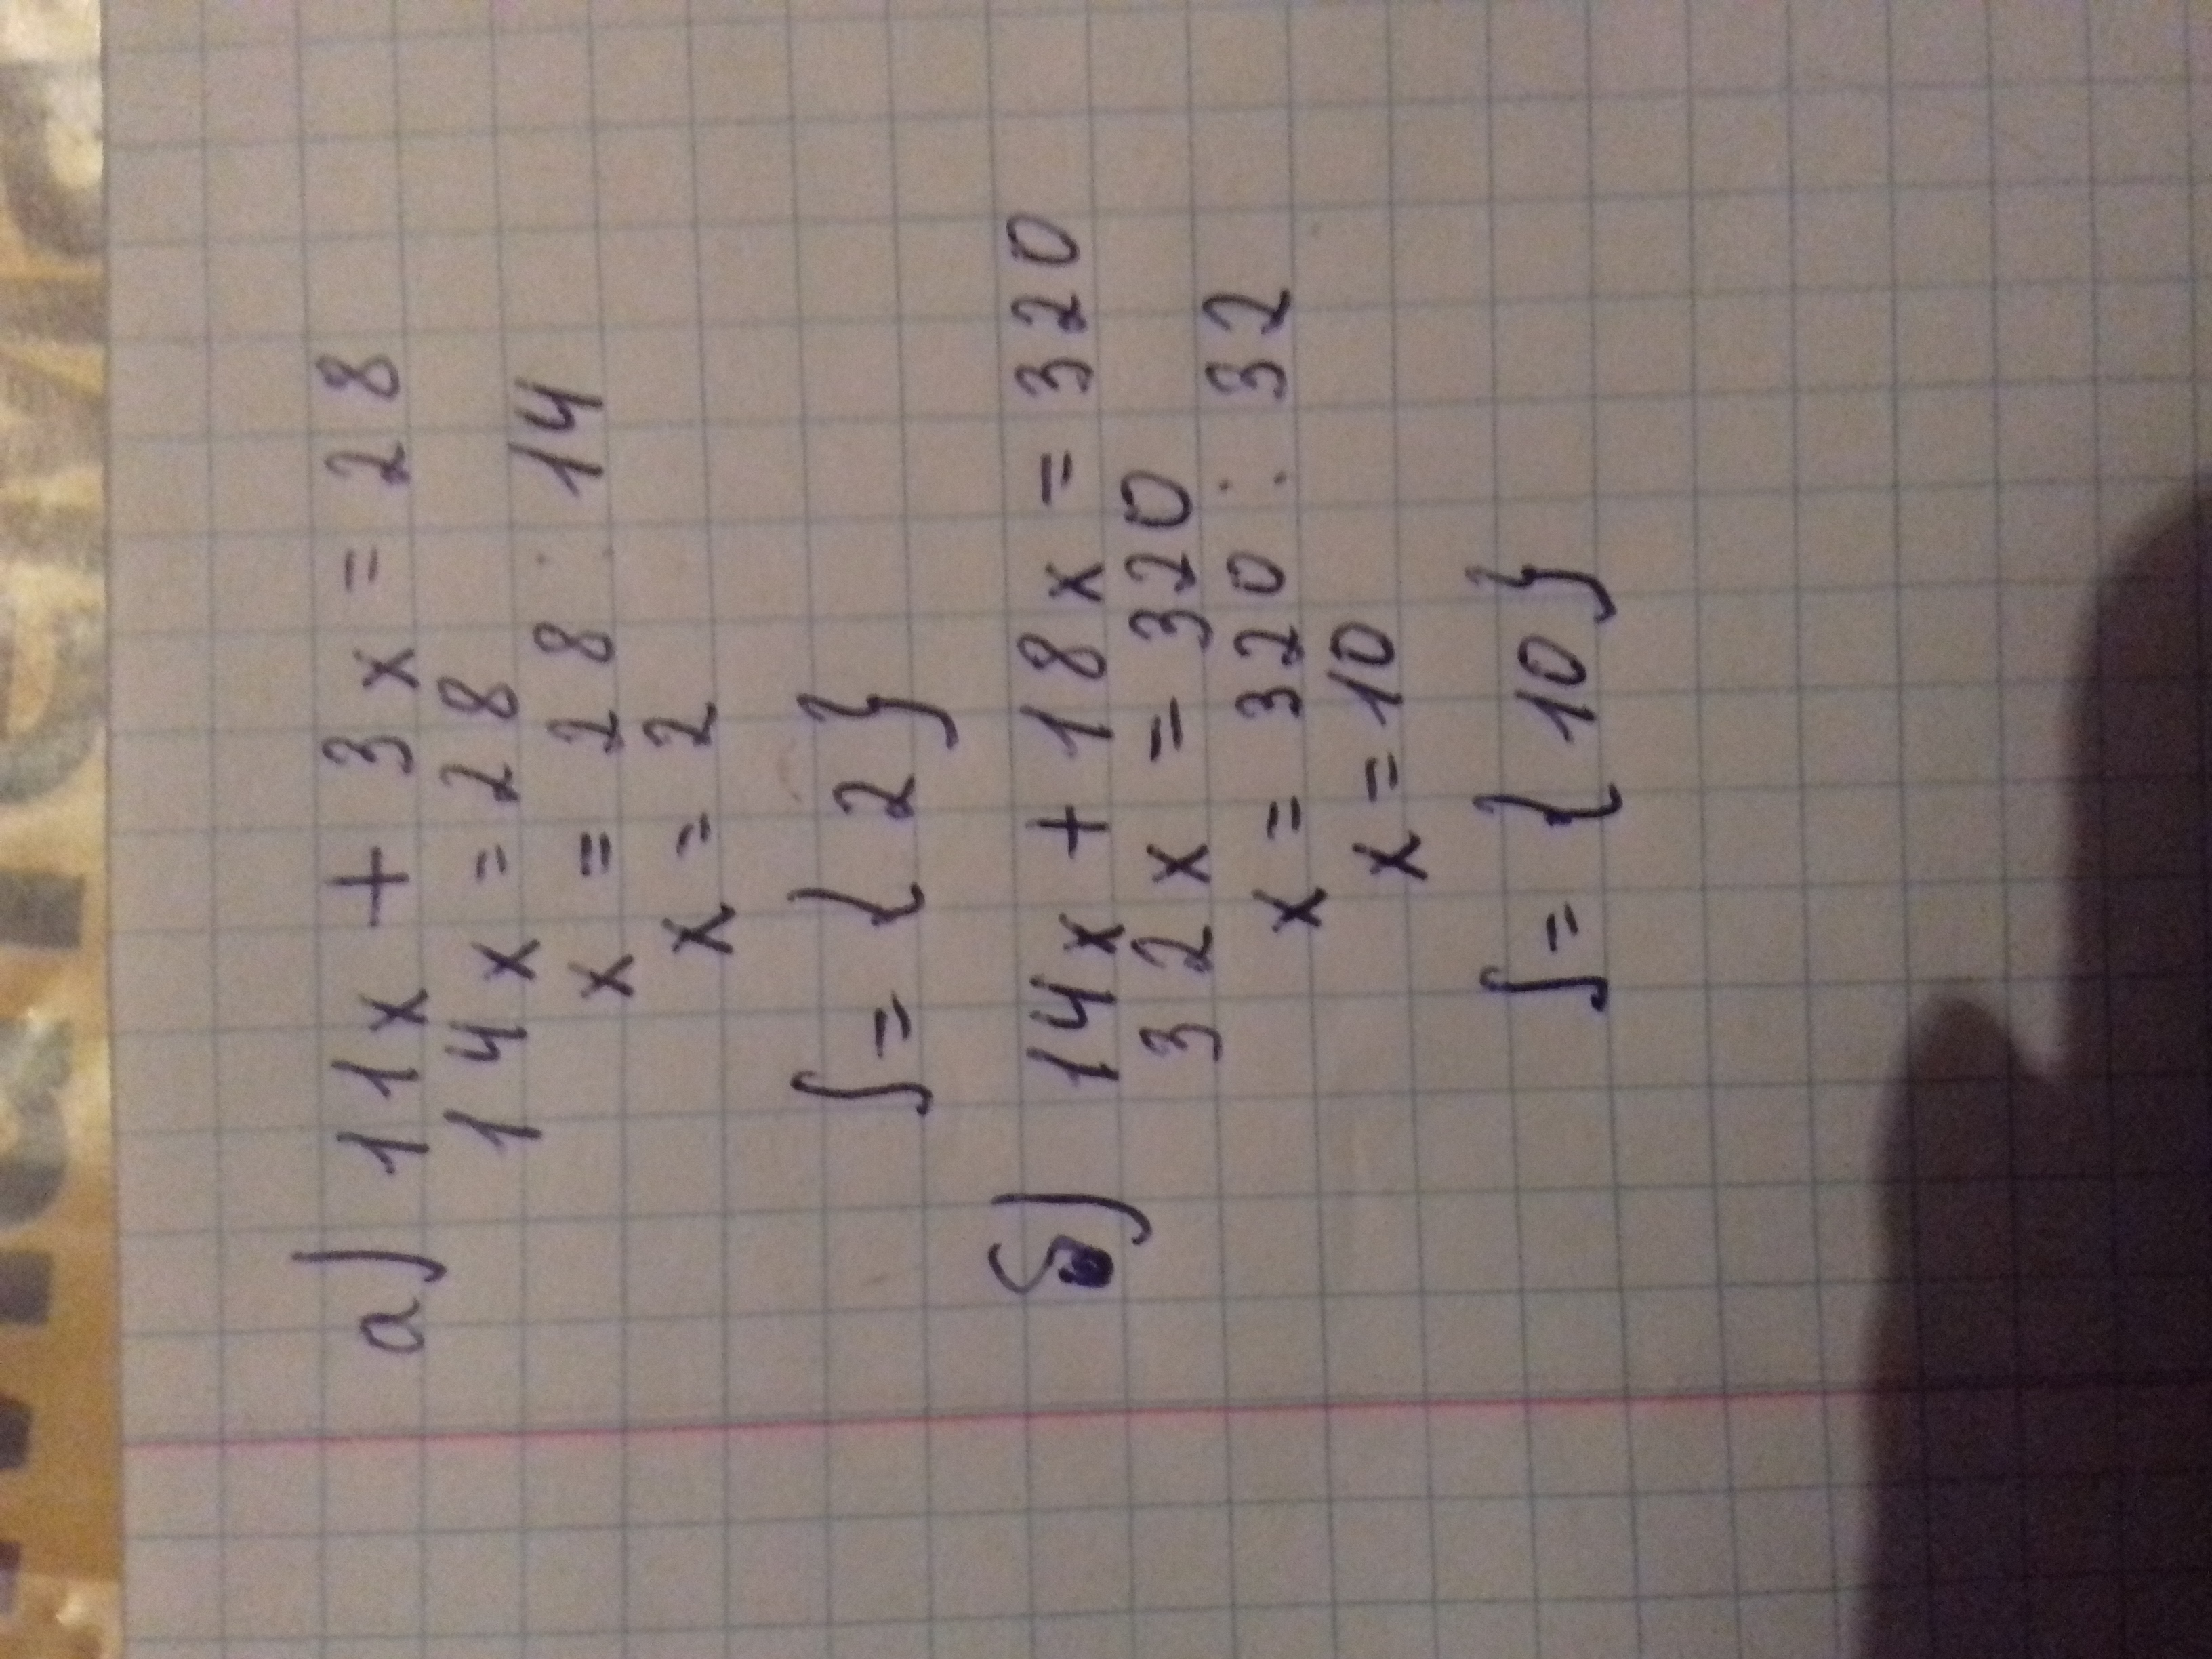 а) 11x + 3x = 28
14x = 28
x = 28 : 14
x = 2
S = { 2 }
б) 14x + 18x = 320
32x = 320
x = 320 : 32
x = 10
S = { 10 }